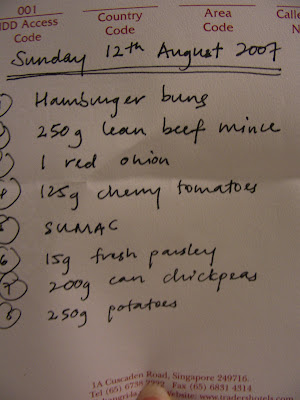 001
IDD Access Country Area Calle
Code Code Code N
Sunday 12th August 2007
1 Hamburger buns
2 250g lean beef mince
3 1 red onion
4 125g cherry tomatoes
5 SUMAC
6 15g fresh parsley
7 200g can chickpeas
8 250g potatoes
1A Cuscaden Road, Singapore 249716.
Tel (65) 6738 2222 Fax (65) 6831 4314
Website: www.tradershotels.com